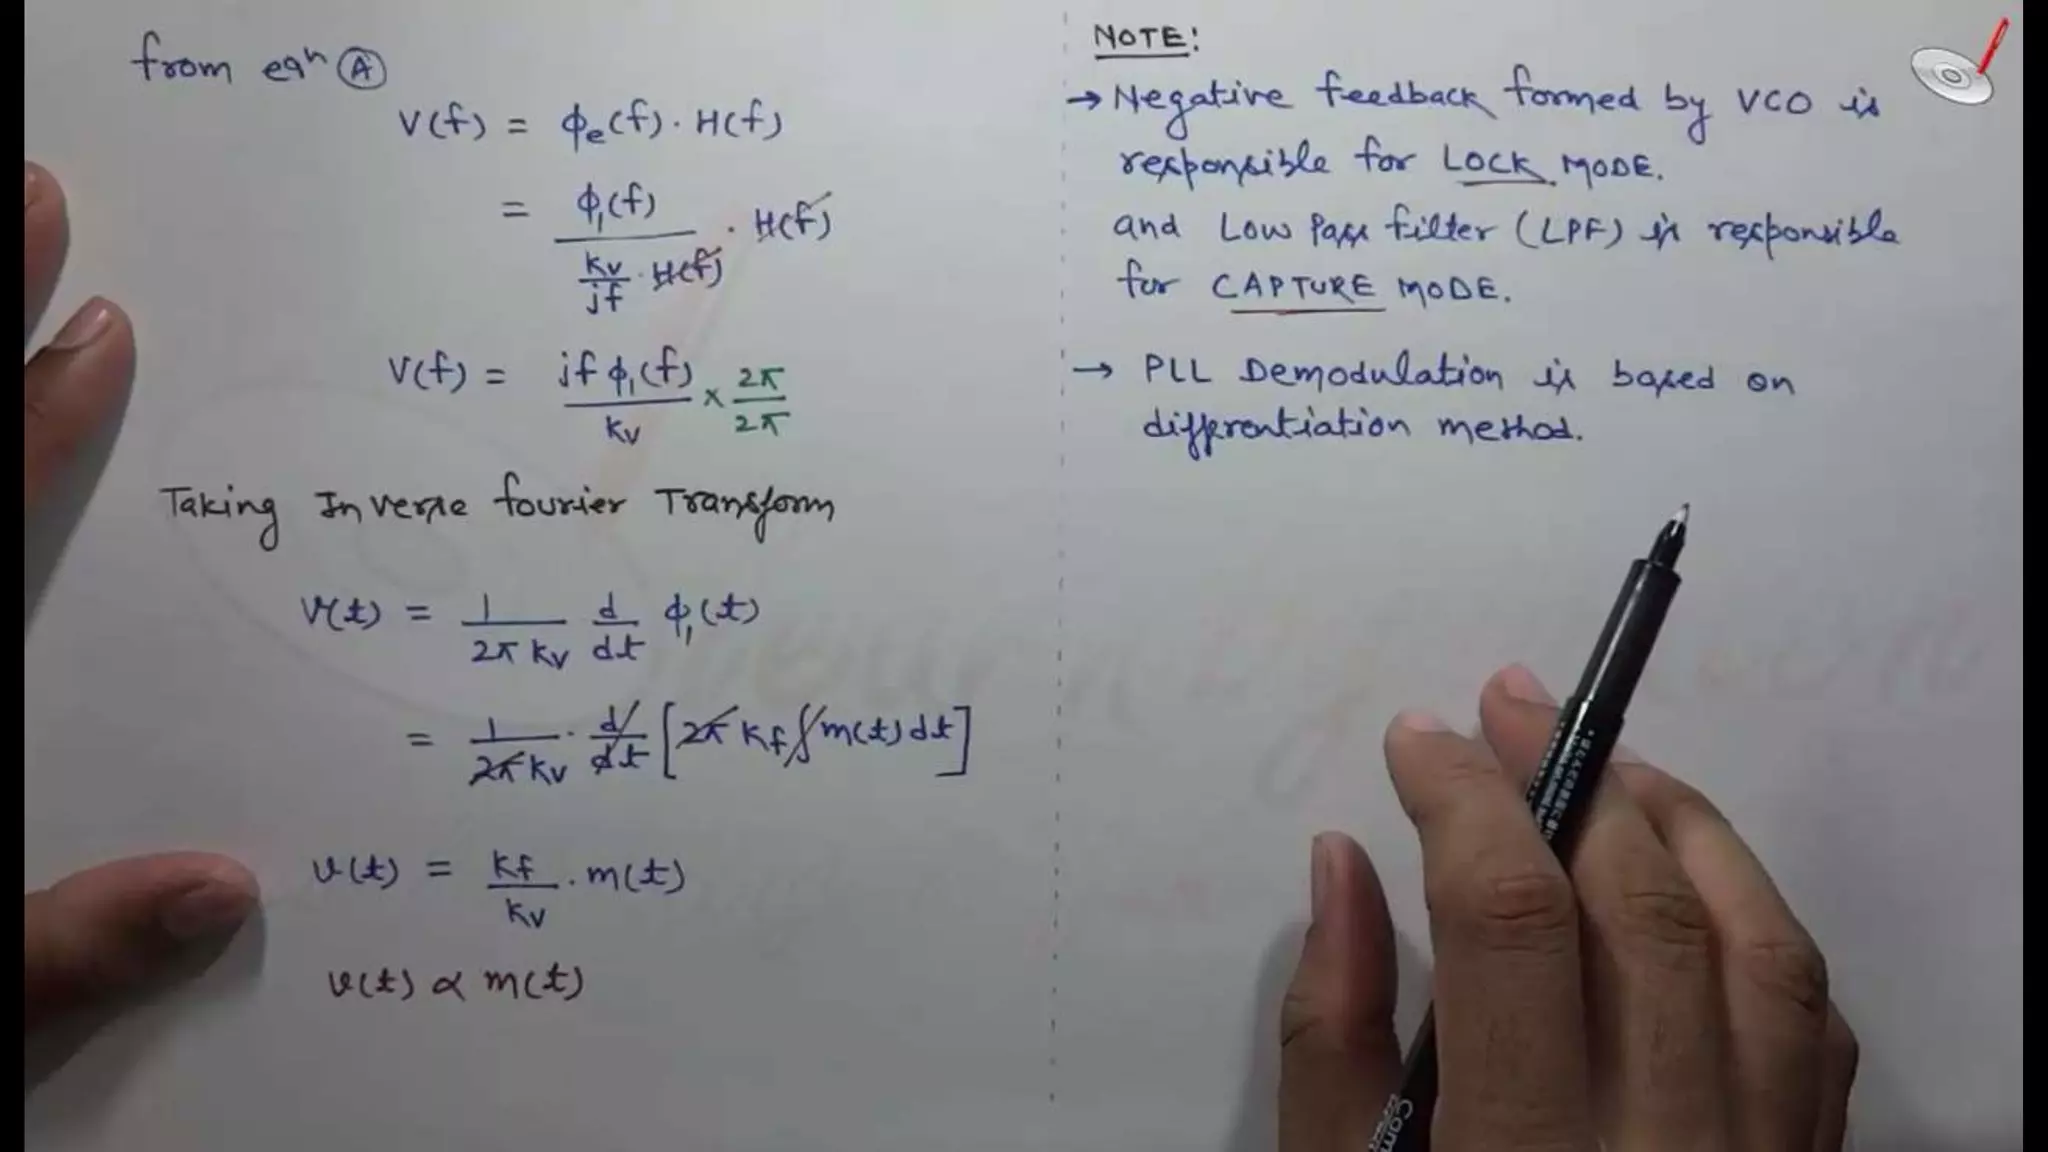 from eqⁿ Ⓐ
V(f) = ϕₑ(f) · H(f)
= ϕ₁(f) / (kv/jf · H(f)) · H(f)
V(f) = jf ϕ₁(f) / kv × 2π/2π
Taking Inverse fourier Transform
v(t) = 1/(2π kv) d/dt ϕ₁(t)
= 1/(2π kv) · d/dt [2π kf ∫ m(t) dt]
v(t) = kf/kv · m(t)
v(t) ∝ m(t)
NOTE:
→ Negative feedback formed by VCO is
responsible for LOCK MODE.
and Low Pass filter (LPF) is responsible
for CAPTURE MODE.
→ PLL Demodulation is based on
differentiation method.